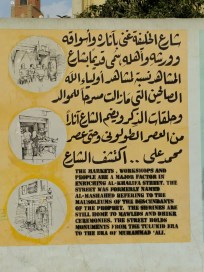 شارع الخليفة غني بآثاره وأسواقه
وورشه وأهله سمي قديما بشارع
المشاهد نسبة لمشاهد أولياء الله
الصالحين التي مازالت مسرحا للموالد
وحلقات الذكر ويضم الشارع آثارا
من العصر الطولوني وحتى عصر
محمد علي .. اكتشف الشارع
THE MARKETS, WORKSHOPS AND
PEOPLE ARE A MAJOR FACTOR IN
ENRICHING AL-KHALIFA STREET. THE
STREET WAS FORMERLY NAMED
AL-MASHAHED REFERING TO THE
MAUSOLEUMS OF THE DESCENDANTS
OF THE PROPHET. THE HOUSES ARE
STILL HOME TO MAWLIDS AND DHIKR
CEREMONIES. THE STREET HOLDS
MONUMENTS FROM THE TULUNID ERA
TO THE ERA OF MUHAMMAD 'ALI.